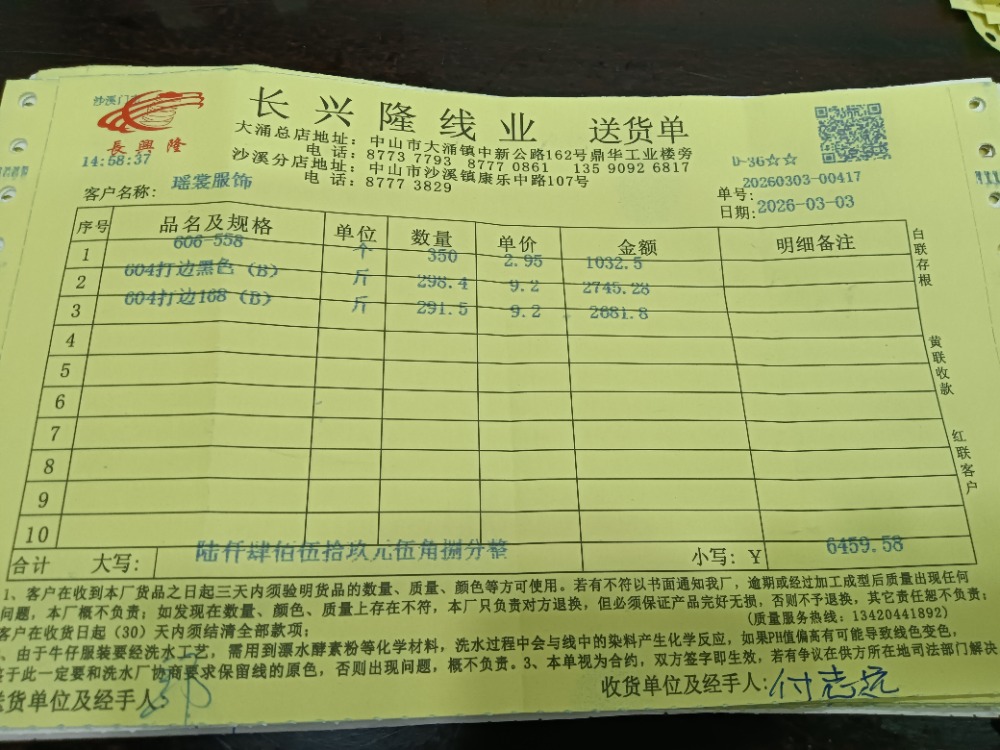 沙溪门市
長興隆
长兴隆线业 送货单
大涌总店地址：中山市大涌镇中新公路162号鼎华工业楼旁
电话：8773 7793 8777 0861 135 9092 6817
沙溪分店地址：中山市沙溪镇康乐中路107号
电话：8777 3829
14:58:37
D-36☆☆
客户名称：瑶裳服饰
单号：20260303-00417
日期：2026-03-03
序号 品名及规格 单位 数量 单价 金额 明细备注
1 606-558 个 350 2.95 1032.5
2 604打边黑色（B） 斤 298.4 9.2 2745.28
3 604打边168（B） 斤 291.5 9.2 2681.8
4
5
6
7
8
9
10
合计 大写：陆仟肆佰伍拾玖元伍角捌分整 小写：￥ 6459.58
白联存根
黄联收款
红联客户
1、客户在收到本厂货品之日起三天内须验明货品的数量、质量、颜色等方可使用。若有不符以书面通知我厂，逾期或经过加工成型后质量出现任何
问题，本厂概不负责；如发现在数量、颜色、质量上存在不符，本厂只负责对方退换，但必须保证产品完好无损，否则不予退换，其它责任恕不负责；
客户在收货日起（30）天内须结清全部款项；
(质量服务热线：13420441892)
、由于牛仔服装要经洗水工艺，需用到漂水酵素粉等化学材料，洗水过程中会与线中的染料产生化学反应，如果PH值偏高有可能导致线色变色，
于此一定要和洗水厂协商要求保留线的原色，否则出现问题，概不负责。3、本单视为合约，双方签字即生效，若有争议在供方所在地司法部门解决
送货单位及经手人：
收货单位及经手人：付志远